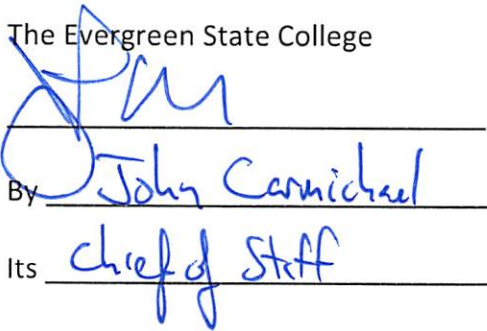 The Evergreen State College
By John Carmichael
Its Chief of Staff